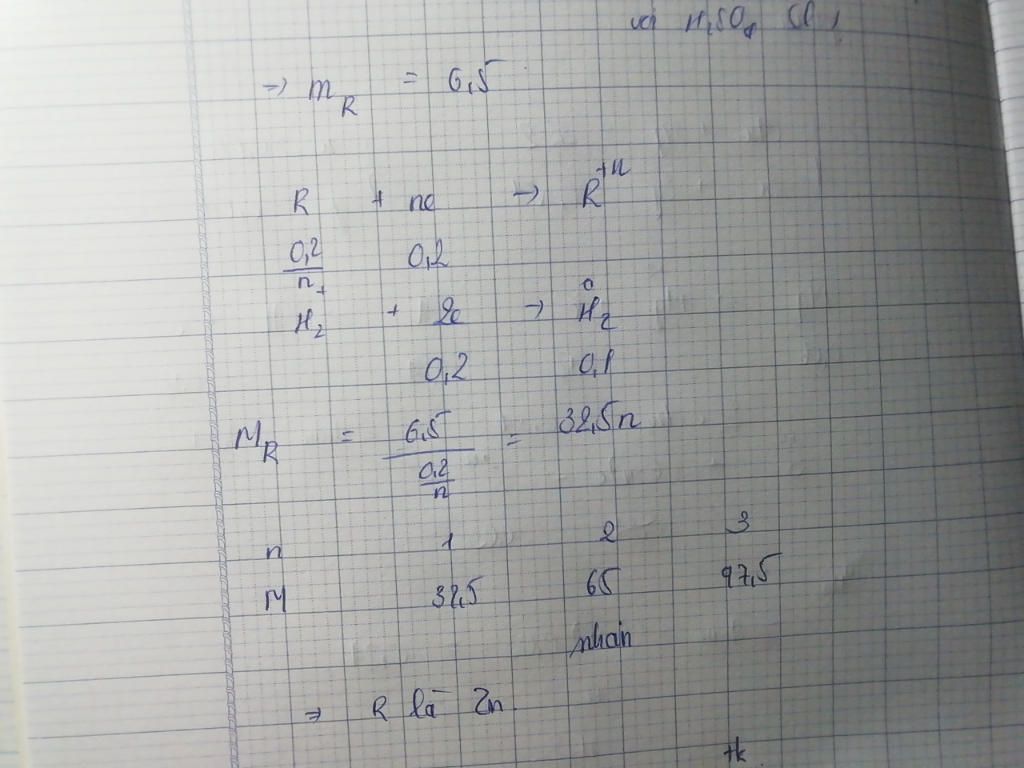 với H₂SO₄
→ m_R = 6,5
R + ne → R⁺ⁿ
0,2/n 0,2
H₂⁺ + 2e → H₂⁰
0,2 0,1
M_R = 6,5/(0,2/n) = 32,5n
n 1 2 3
M 32,5 65 97,5
nhận
⇒ R là Zn
tk